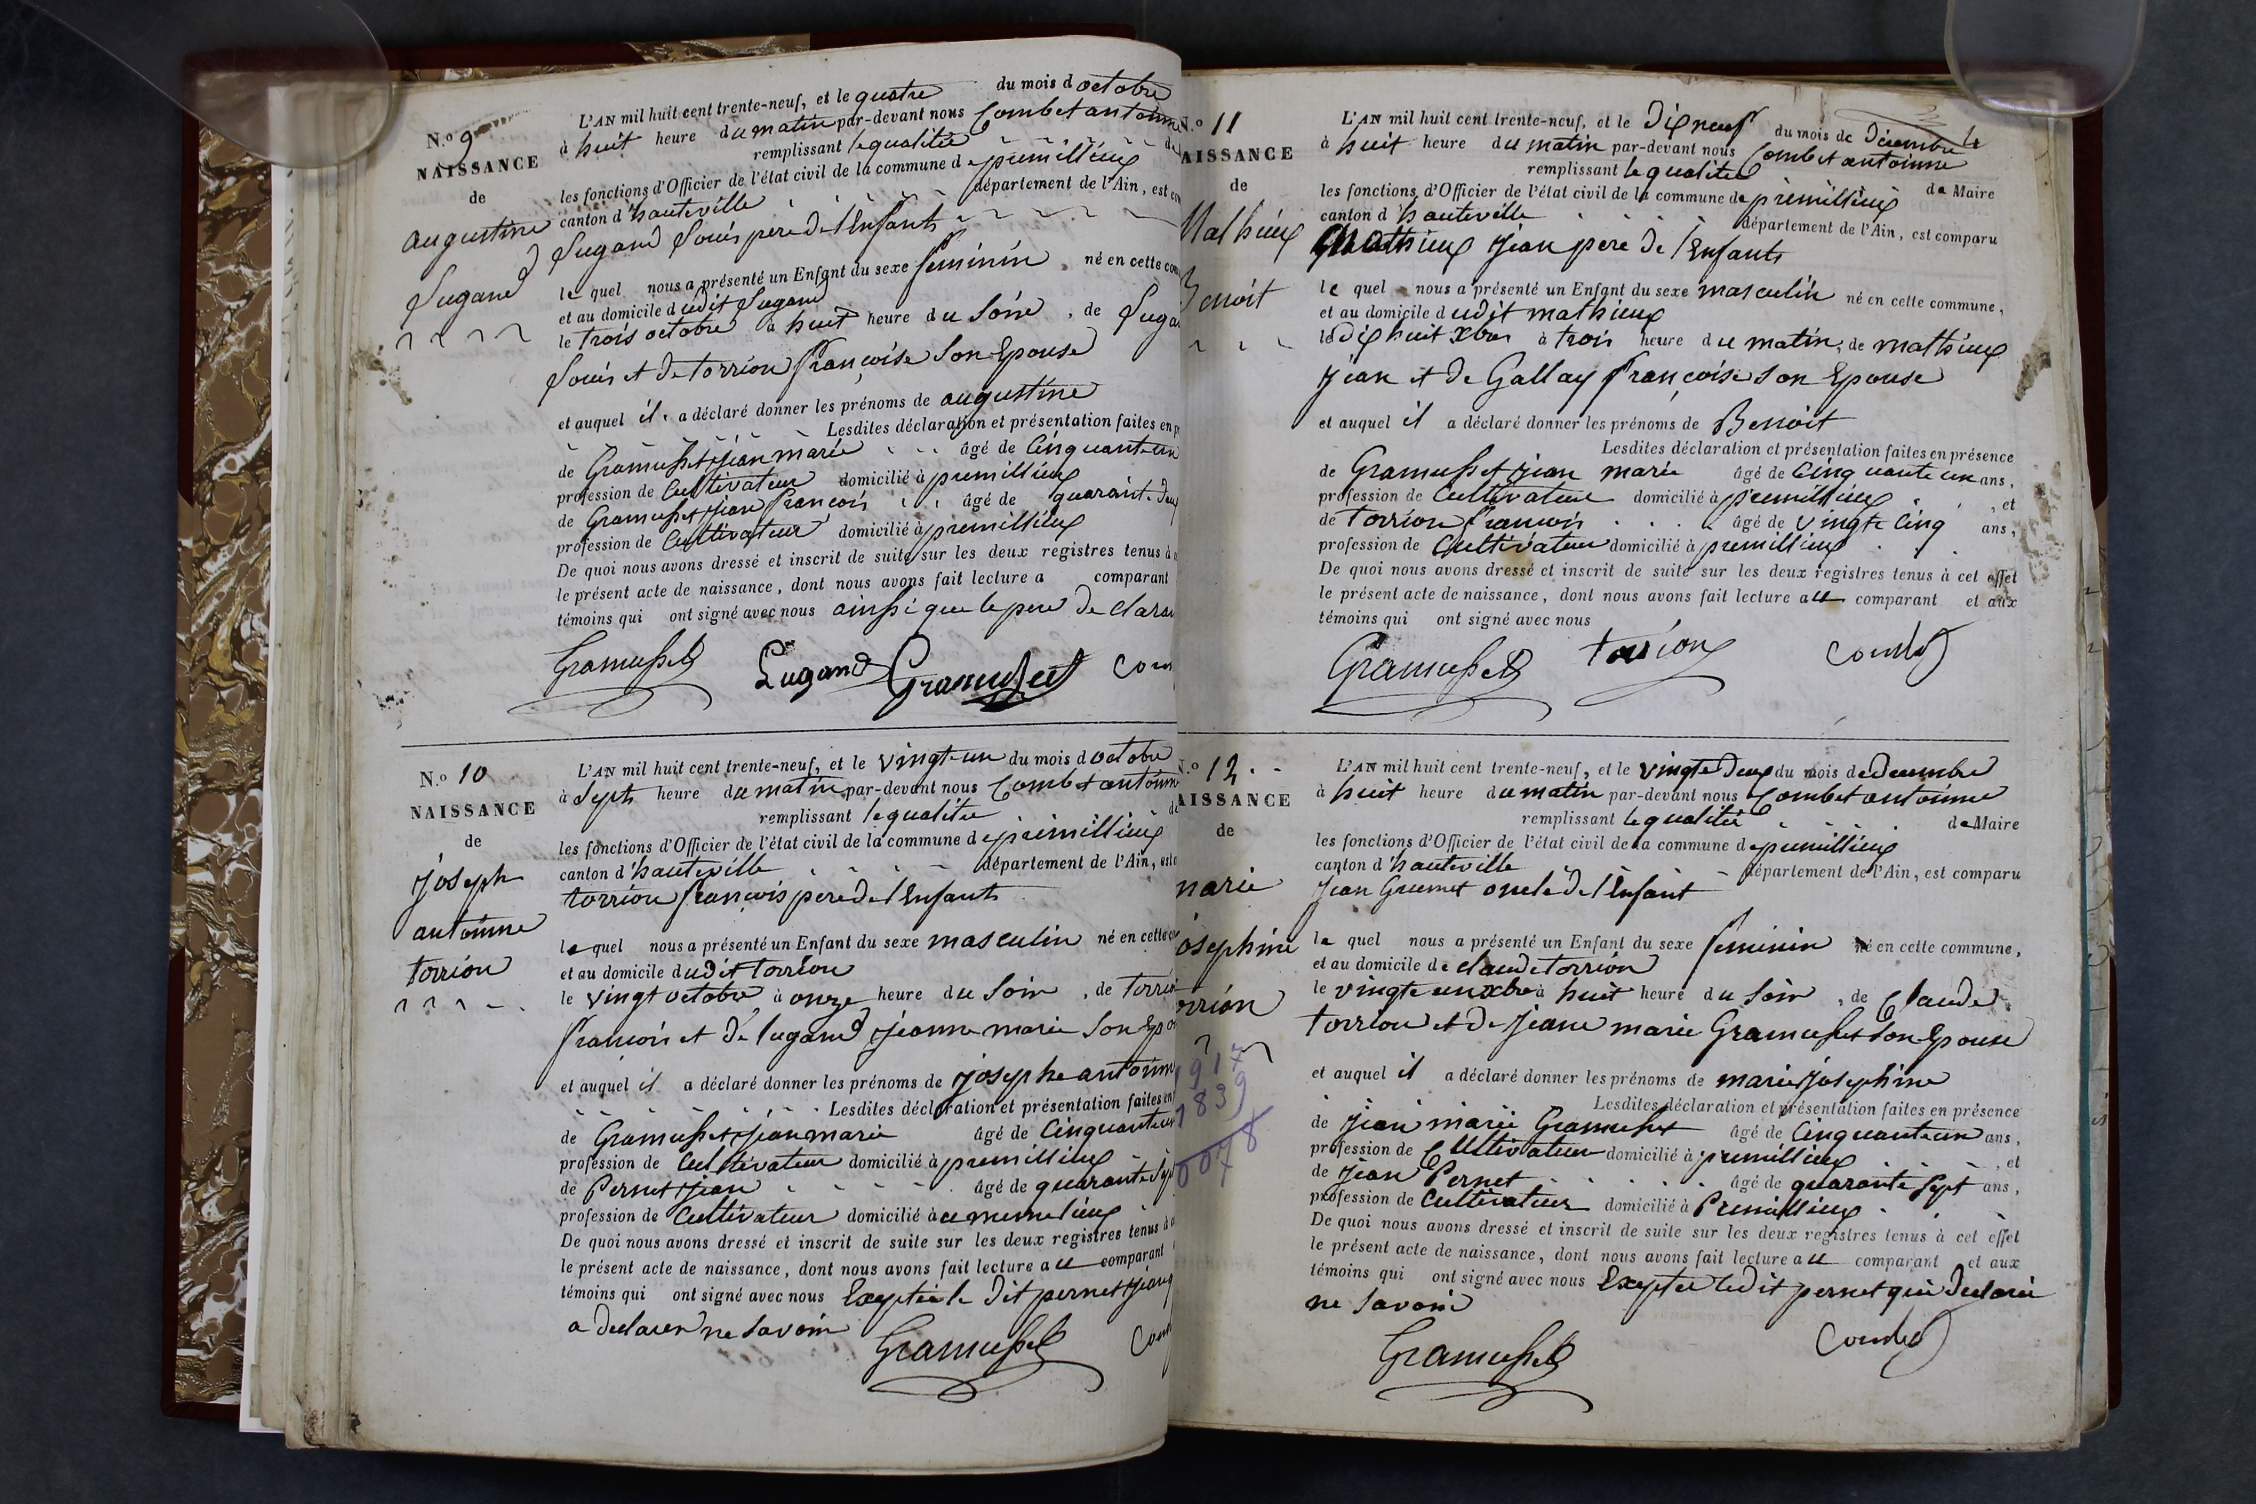 N.o 9
NAISSANCE
de
augustine
Lugand
L'AN mil huit cent trente-neuf, et le quatre du mois d octobre
à huit heure du matin par-devant nous Combet antoinne
remplissant le qualitée de
les fonctions d'Officier de l'état civil de la commune de premillieux
canton d'hauteville département de l'Ain, est com
Lugand Louis pere de l'Enfants
le quel nous a présenté un Enfant du sexe feminin né en cette com
et au domicile dudit Lugand
le trois octobre à huit heure du Soire, de Luga
Louis et de torrion françoise Son Epouse
et auquel il a déclaré donner les prénoms de augustine
Lesdites déclaration et présentation faites en p
de Gramusset jean marie âgé de Cinquante un
profession de Cultivateur domicilié à premillieux
de Gramusset jean françois âgé de quarant-deux
profession de Cultivateur domicilié à premillieux
De quoi nous avons dressé et inscrit de suite sur les deux registres tenus à c
le présent acte de naissance, dont nous avons fait lecture a comparant
témoins qui ont signé avec nous ainssi que le pere de claran
Gramusset Lugand Gramusset Com
N.o 10
NAISSANCE
de
joseph
antoinne
torrion
L'AN mil huit cent trente-neuf, et le vingt-un du mois d octobre
à Septs heure du matin par-devant nous Combet antoinne
remplissant le qualitée de
les fonctions d'Officier de l'état civil de la commune de premillieux
canton d'hauteville département de l'Ain, est c
torrion françois père de l'Enfants
le quel nous a présenté un Enfant du sexe masculin né en cette co
et au domicile dudit torrion
le vingt octobre à onze heure du Soir, de torri
francois et de lugand jeanne marie Son Epo
et auquel il a déclaré donner les prénoms de josephe antoinn
Lesdites déclaration et présentation faites en
de Gramusset jean marie âgé de Cinquante un
profession de Cultivateur domicilié à premillieux
de Pernet jean âgé de quarante Sep
profession de Cultivateur domicilié à ce meme lieux
De quoi nous avons dressé et inscrit de suite sur les deux registres tenus à c
le présent acte de naissance, dont nous avons fait lecture au comparant
témoins qui ont signé avec nous Exeptée le dit pernet jean q
a declarer ne Savoir
Gramusset Com
N.o 11
AISSANCE
de
Mathieux
Benoit
L'AN mil huit cent trente-neuf, et le Dix neuf du mois de Décembre
à huit heure du matin par-devant nous Combet antoinne
remplissant le qualitée de Maire
les fonctions d'Officier de l'état civil de la commune de premillieux
canton d'hauteville département de l'Ain, est comparu
Mathieux jean pere de l'Enfants
le quel nous a présenté un Enfant du sexe masculin né en cette commune,
et au domicile dudit mathieux
le dix huit xbre à trois heure du matin, de mathieux
jean et de Gallay françoise Son Epouse
et auquel il a déclaré donner les prénoms de Benoit
Lesdites déclaration et présentation faites en présence
de Gramusset jean marie âgé de Cinq uante un ans,
profession de Cultivateur domicilié à premillieux, et
de torrion francois âgé de vingte Cinq ans,
profession de Cultivateur domicilié à premillieux
De quoi nous avons dressé et inscrit de suite sur les deux registres tenus à cet effet
le présent acte de naissance, dont nous avons fait lecture au comparant et aux
témoins qui ont signé avec nous
Gramusset torrion Combet
N.o 12
AISSANCE
de
marie
josephine
orrion
1917
1839
0078
L'AN mil huit cent trente-neuf, et le vingte Deux du mois de Decembre
à huit heure du matin par-devant nous Combet antoinne
remplissant le qualitée de Maire
les fonctions d'Officier de l'état civil de la commune de premillieux
canton d'hauteville département de l'Ain, est comparu
Jean Gramet oncle de l'Enfant
le quel nous a présenté un Enfant du sexe feminin né en cette commune,
et au domicile de claude torrion
le vingte un xbre à huit heure du Soir, de Claude
torrion et de jeane marie Gramusset Son Epouse
et auquel il a déclaré donner les prénoms de marie josephine
Lesdites déclaration et présentation faites en présence
de jean marie Gramusset âgé de Cinquante un ans,
profession de Cultivateur domicilié à premillieux, et
de jean Pernet âgé de quarante Sept ans,
profession de Cultivateur domicilié à Premillieux
De quoi nous avons dressé et inscrit de suite sur les deux registres tenus à cet effet
le présent acte de naissance, dont nous avons fait lecture au comparant et aux
témoins qui ont signé avec nous Exeptée ledit pernet qui declarée
ne Savoir
Gramusset Combet